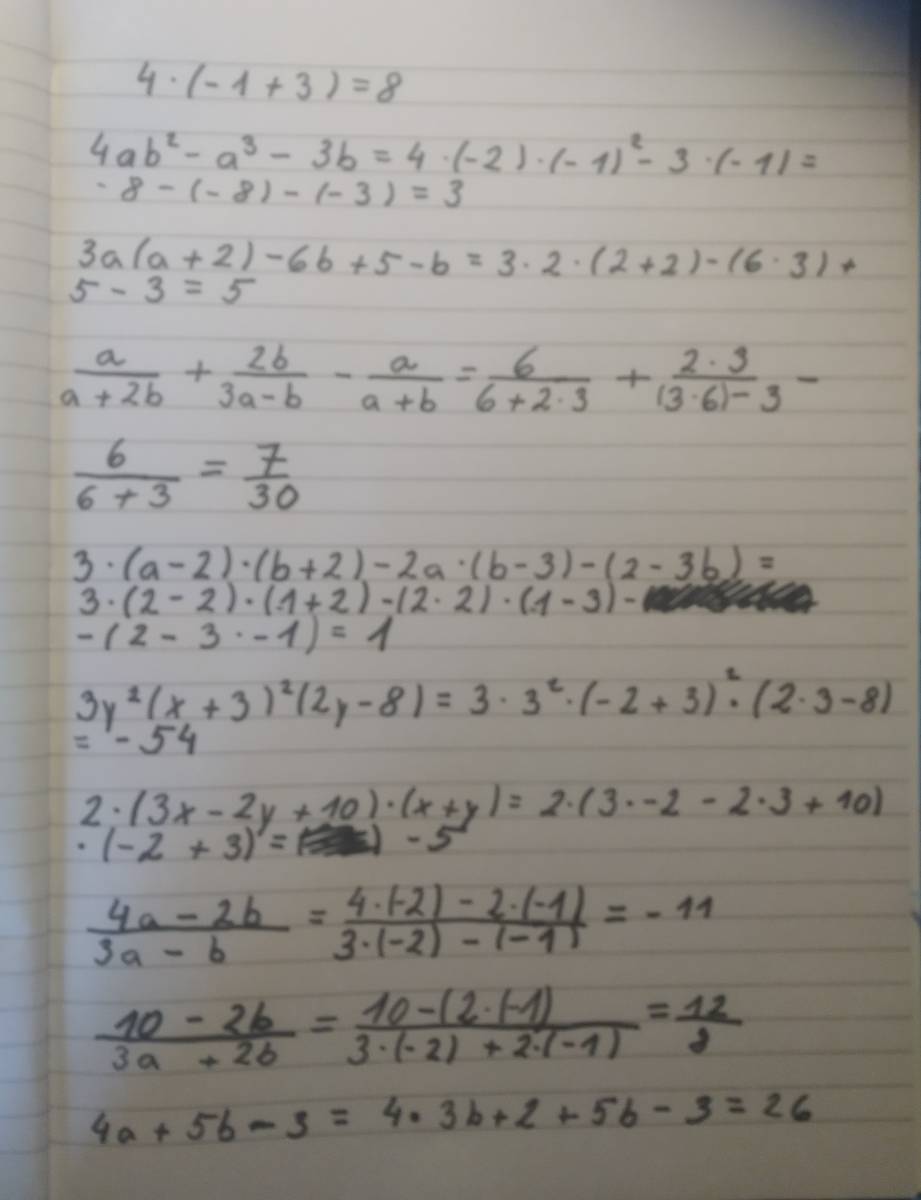 4 · (-1 + 3) = 8
4ab² - a³ - 3b = 4 · (-2) · (-1)² - 3 · (-1) =
- 8 - (-8) - (-3) = 3
3a(a + 2) - 6b + 5 - b = 3 · 2 · (2+2) - (6 · 3) +
5 - 3 = 5
a/(a + 2b) + 2b/(3a - b) - a/(a + b) = 6/(6 + 2 · 3) + (2 · 3)/((3 · 6) - 3) -
6/(6 + 3) = 7/30
3 · (a - 2) · (b + 2) - 2a · (b - 3) - (2 - 3b) =
3 · (2 - 2) · (1 + 2) - (2 · 2) · (1 - 3) -
- (2 - 3 · -1) = 1
3y²(x + 3)²(2y - 8) = 3 · 3² · (-2 + 3)² · (2 · 3 - 8)
= - 54
2 · (3x - 2y + 10) · (x + y) = 2 · (3 · -2 - 2 · 3 + 10)
· (-2 + 3) = ( ) - 5
(4a - 2b)/(3a - b) = (4 · (-2) - 2 · (-1))/(3 · (-2) - (-1)) = - 11
(10 - 2b)/(3a + 2b) = (10 - (2 · (-1))/(3 · (-2) + 2 · (-1)) = 12/8
4a + 5b - 3 = 4 · 3b + 2 + 5b - 3 = 26